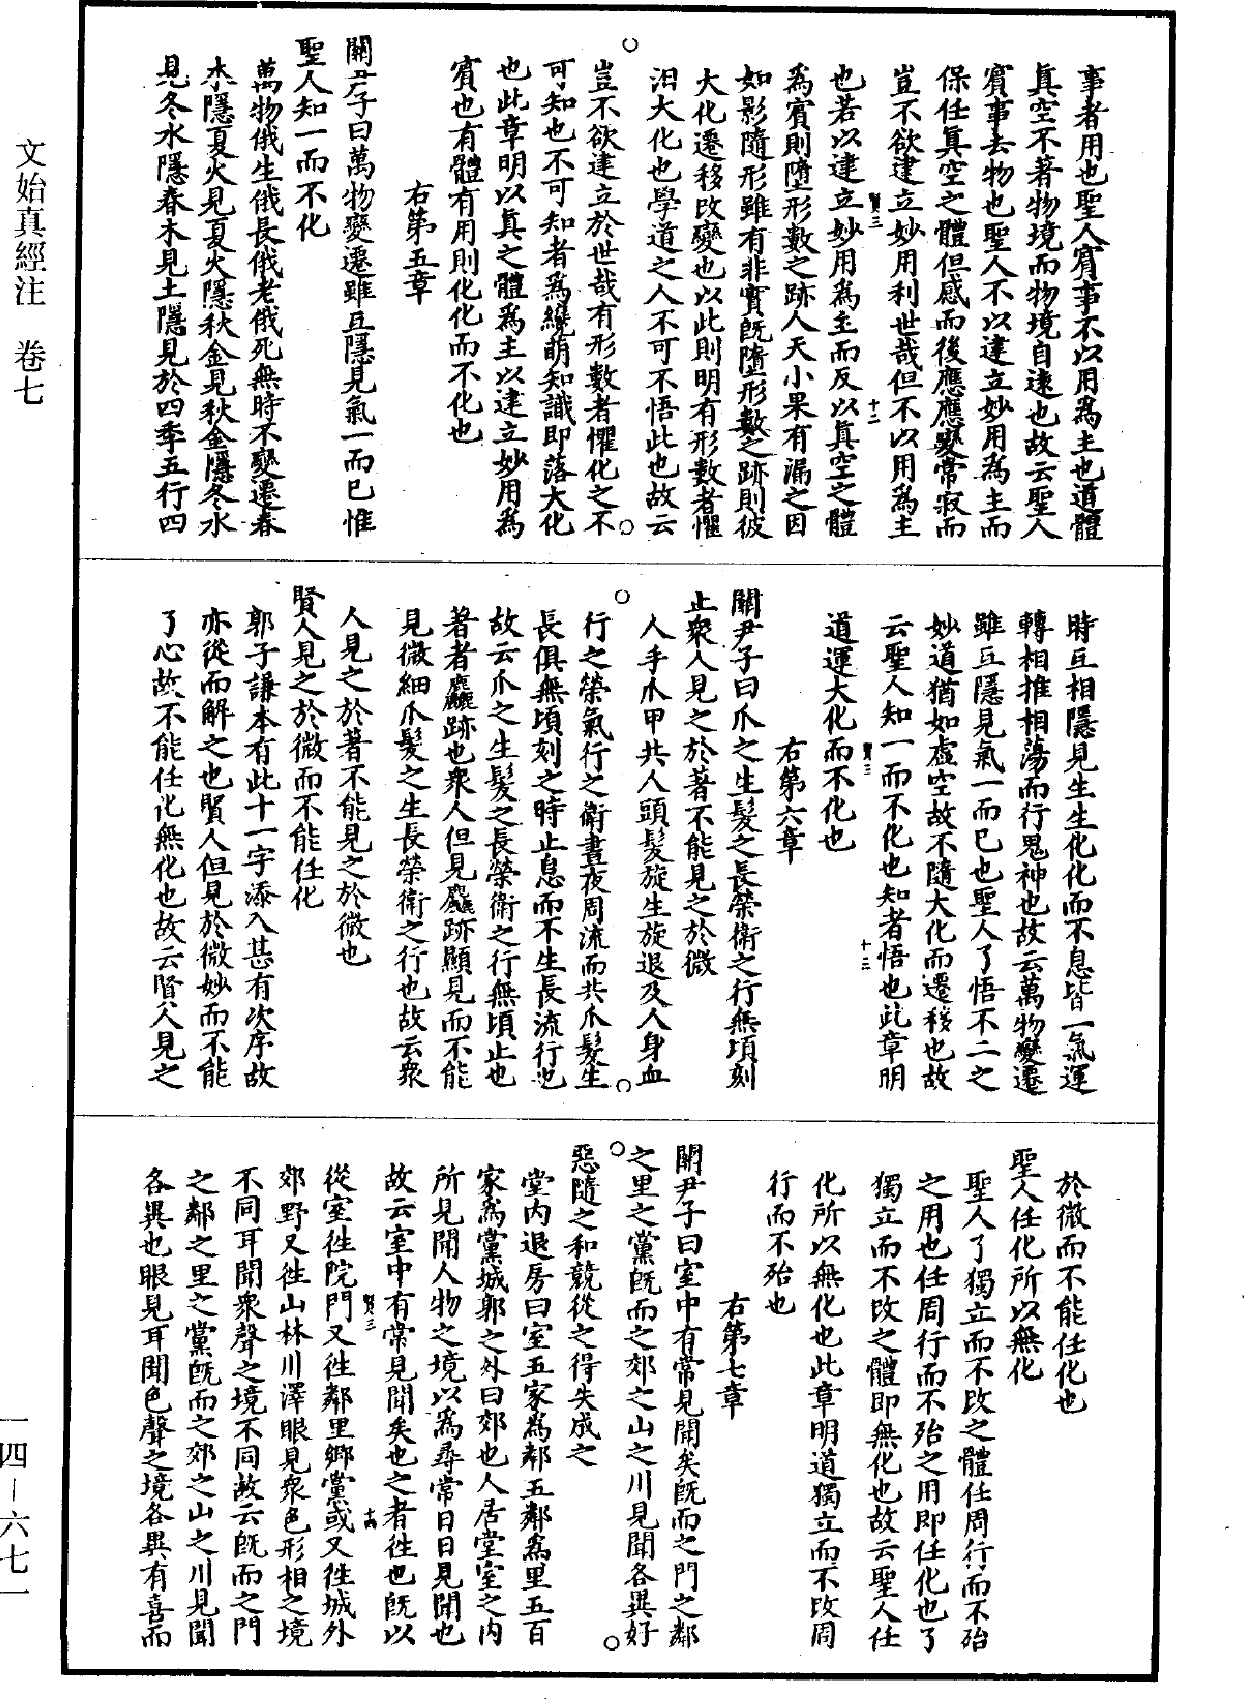 文始真經注 卷七
一四—六七一
事者用也聖人賓事不以用爲主也道體
真空不著物境而物境自遠也故云聖人
賓事去物也聖人不以建立妙用爲主而
保任真空之體但感而後應應變常寂而
豈不欲建立妙用利世哉但不以用爲主
賢三 十二
也若以建立妙用爲主而反以真空之體
爲賓則墮形數之跡人天小果有漏之因
如影隨形雖有非實旣墮形數之跡則彼
大化遷移改變也以此則明有形數者懼
汨大化也學道之人不可不悟此也故云
豈不欲建立於世哉有形數者懼化之不
可知也不可知者爲纔萌知識即落大化
也此章明以真之體爲主以建立妙用爲
賓也有體有用則化化而不化也
右第五章
關尹子曰萬物變遷雖互隱見氣一而已惟
聖人知一而不化
萬物俄生俄長俄老俄死無時不變遷春
木隱夏火見夏火隱秋金見秋金隱冬水
見冬水隱春木見土隱見於四季五行四
時互相隱見生生化化而不息皆一氣運
轉相推相蕩而行鬼神也故云萬物變遷
雖互隱見氣一而已也聖人了悟不二之
妙道猶如虛空故不隨大化而遷移也故
云聖人知一而不化也知者悟也此章明
賢三 十三
道運大化而不化也
右第六章
關尹子曰爪之生髮之長榮衛之行無頃刻
止衆人見之於著不能見之於微
人手爪甲共人頭髮旋生旋退及人身血
行之榮氣行之衛晝夜周流而共爪髮生
長俱無頃刻之時止息而不生長流行也
故云爪之生髮之長榮衛之行無頃止也
著者麤跡也衆人但見麤跡顯見而不能
見微細爪髮之生長榮衛之行也故云衆
人見之於著不能見之於微也
賢人見之於微而不能任化
郭子謙本有此十一字添入甚有次序故
亦從而解之也賢人但見於微妙而不能
了心故不能任化無化也故云賢人見之
於微而不能任化也
聖人任化所以無化
聖人了獨立而不改之體任周行而不殆
之用也任周行而不殆之用即任化也了
獨立而不改之體即無化也故云聖人任
化所以無化也此章明道獨立而不改周
行而不殆也
右第七章
關尹子曰室中有常見聞矣旣而之門之鄰
之里之黨旣而之郊之山之川見聞各異好
惡隨之和競從之得失成之
堂內退房曰室五家爲鄰五鄰爲里五百
家爲黨城郭之外曰郊也人居堂室之內
所見聞人物之境以爲尋常日日見聞也
故云室中有常見聞矣也之者徃也旣以
賢三 十四
從室徃院門又徃鄰里鄉黨或又徃城外
郊野又徃山林川澤眼見衆色形相之境
不同耳聞衆聲之境不同故云旣而之門
之鄰之里之黨旣而之郊之山之川見聞
各異也眼見耳聞色聲之境各異有喜而